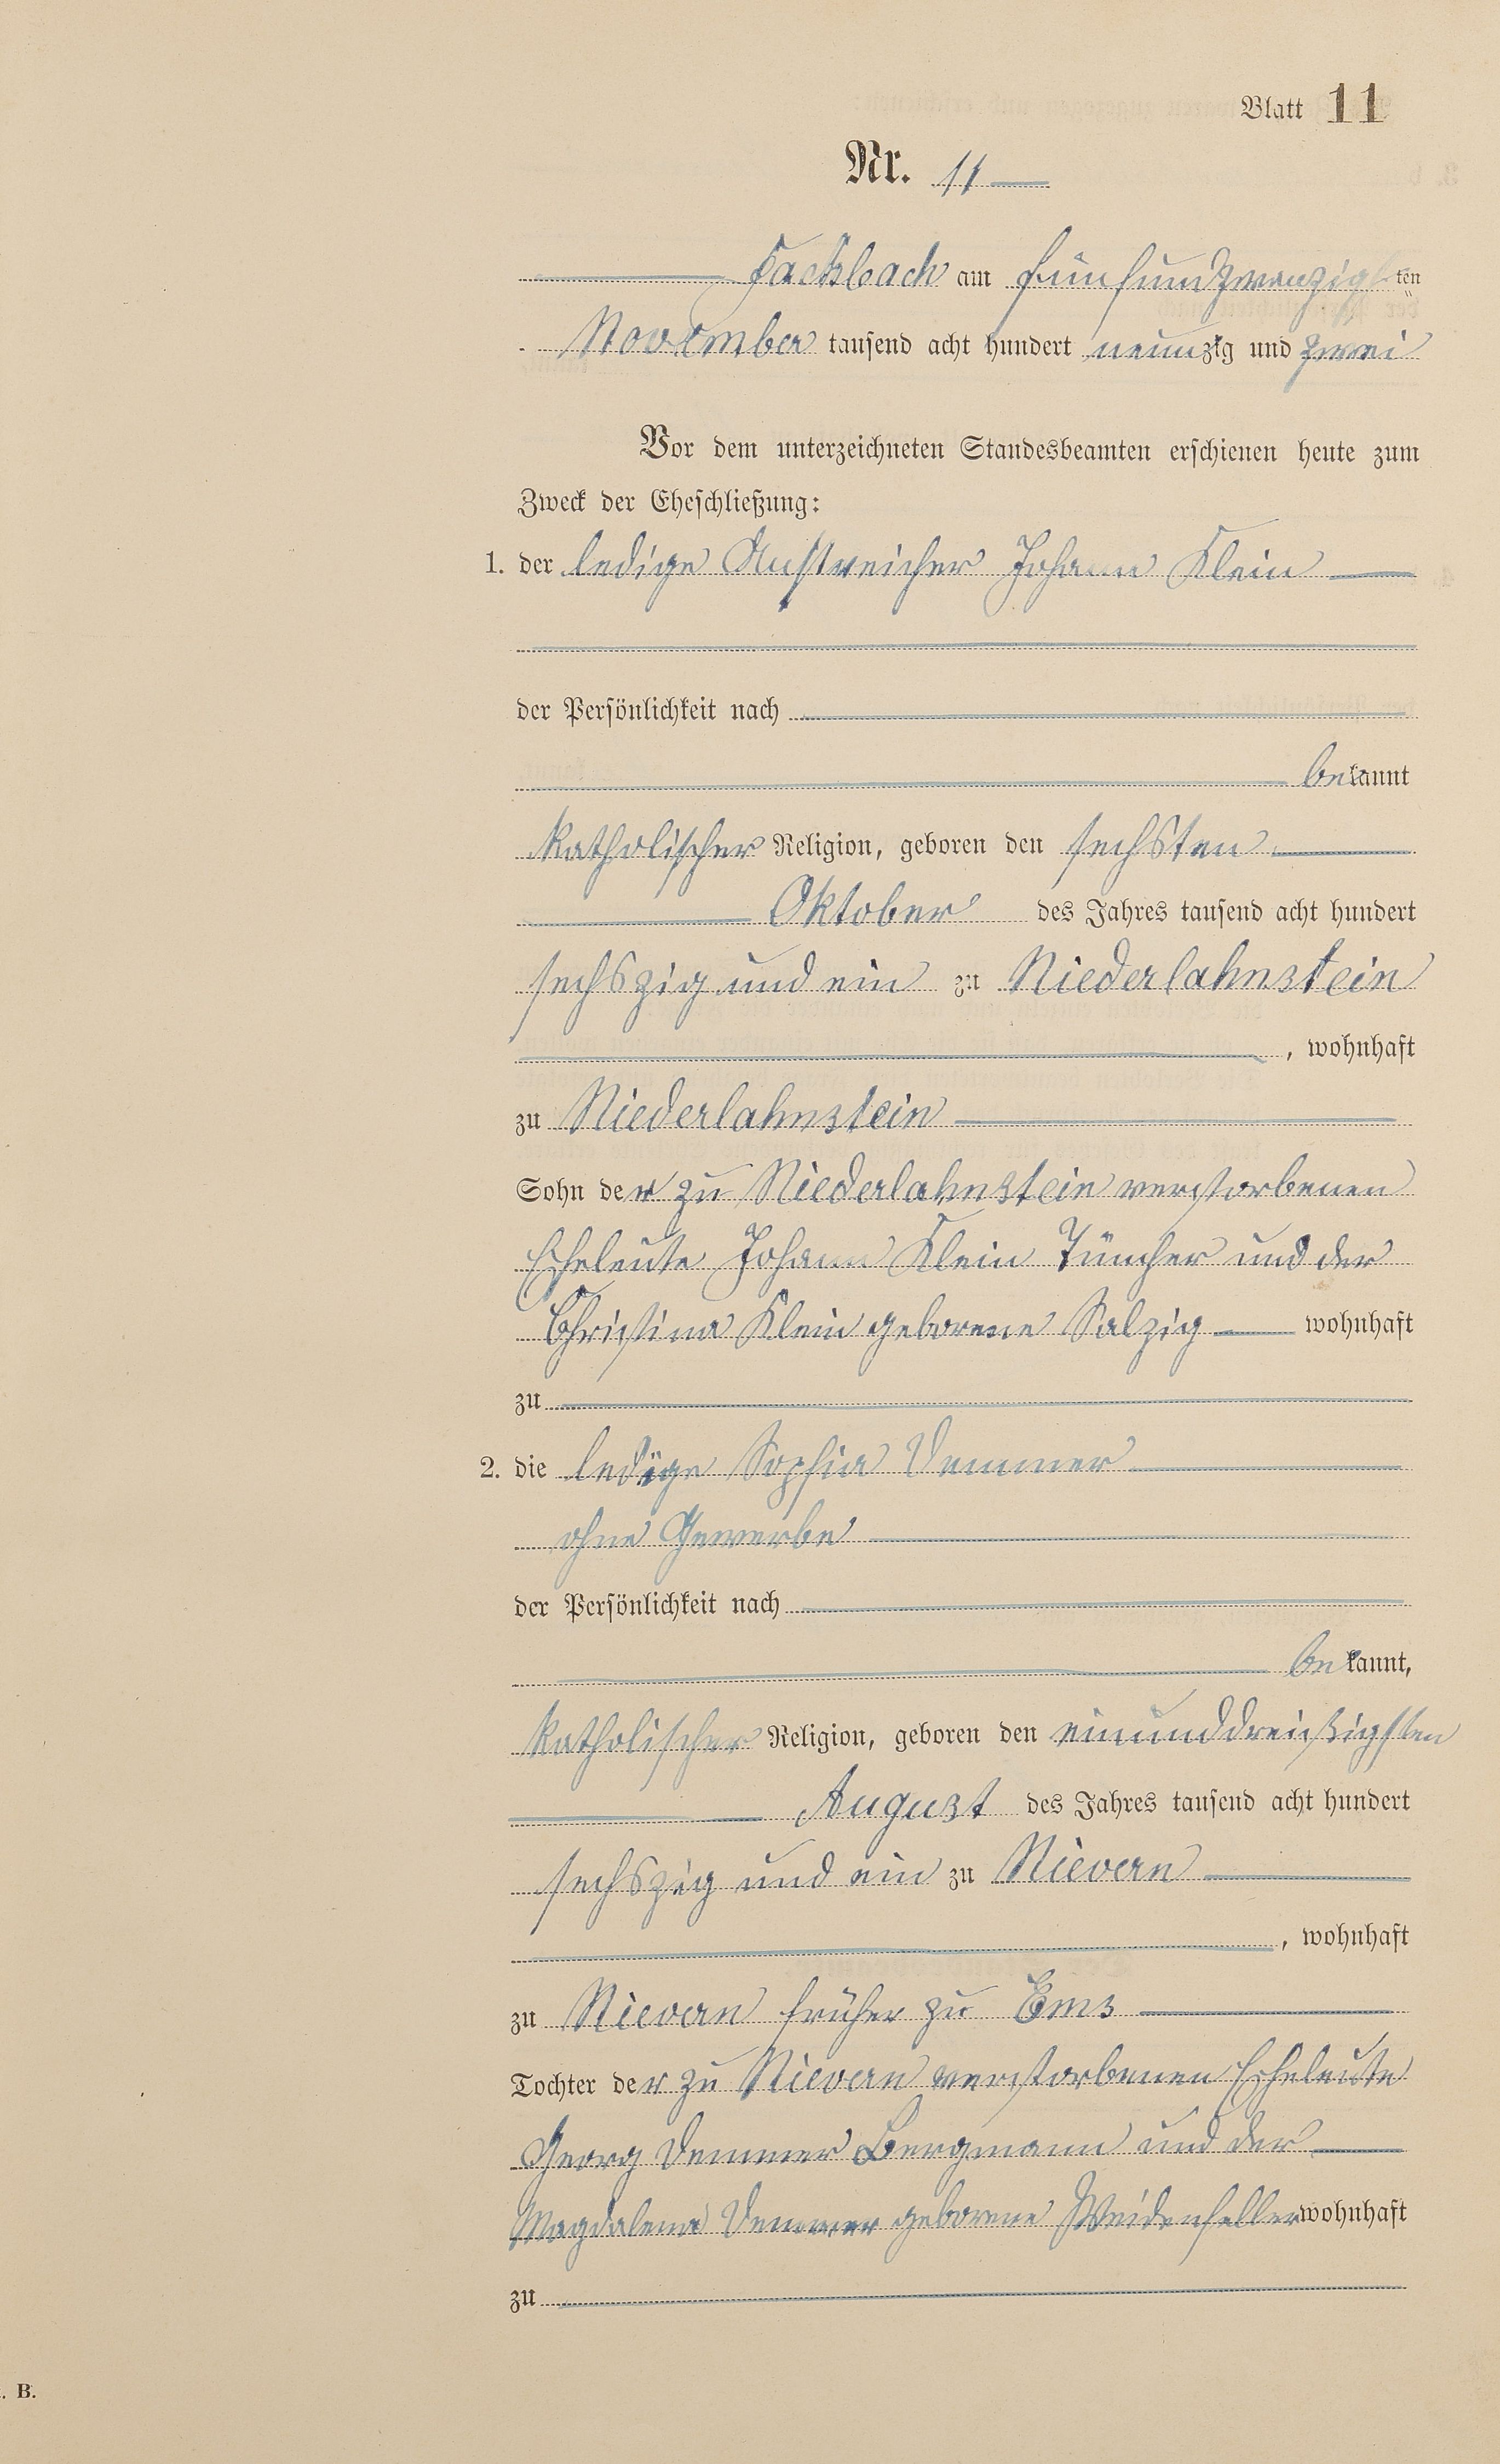 Blatt 11
Nr. 11
Fachbach am fünfundzwanzigsten
November tausend acht hundert neunzig und zwei
Vor dem unterzeichneten Standesbeamten erschienen heute zum
Zweck der Eheschließung:
1. der ledige Anstreicher Johann Klein
der Persönlichkeit nach
bekannt
katholischer Religion, geboren den sechsten
Oktober des Jahres tausend acht hundert
sechszig und ein zu Niederlahnstein
, wohnhaft
zu Niederlahnstein
Sohn der zu Niederlahnstein verstorbenen
Eheleute Johann Klein Tüncher und der
Christina Klein geborene Salzig wohnhaft
zu
2. die ledige Sophia Demmer
ohne Gewerbe
der Persönlichkeit nach
bekannt,
katholischer Religion, geboren den einunddreißigsten
August des Jahres tausend acht hundert
sechszig und ein zu Nievern
, wohnhaft
zu Nievern früher zu Ems
Tochter der zu Nievern verstorbenen Eheleute
Georg Demmer Bergmann und der
Magdalena Demmer geborene Weidenfeller wohnhaft
zu
. B.